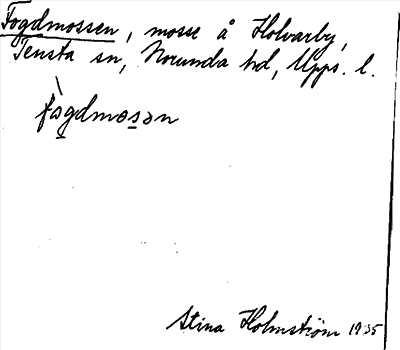 Fogdmossen, mosse å Holvarby,
Tensta sn, Norunda hd, Upps. l.
fògdmosən
Stina Holmström 1935